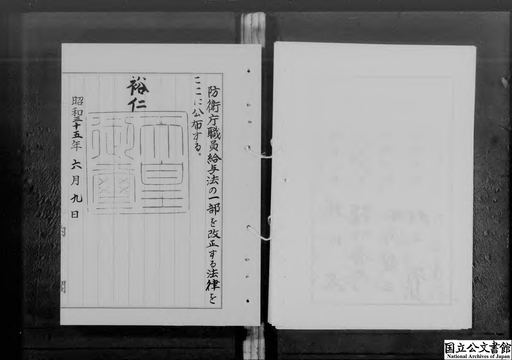 防衛庁職員給与法の一部を改正する法律を
ここに公布する。
裕仁
天皇
御璽
昭和三十五年六月九日
内閣
国立公文書館
National Archives of Japan